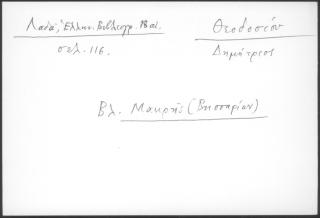 Λαδά, Ἑλλην. Βιβλιογρ. 18 αἰ.
σελ. 116.
Θεοδοσίου
Δημήτριος
Βλ. Μακρῆς (Βησσαρίων)